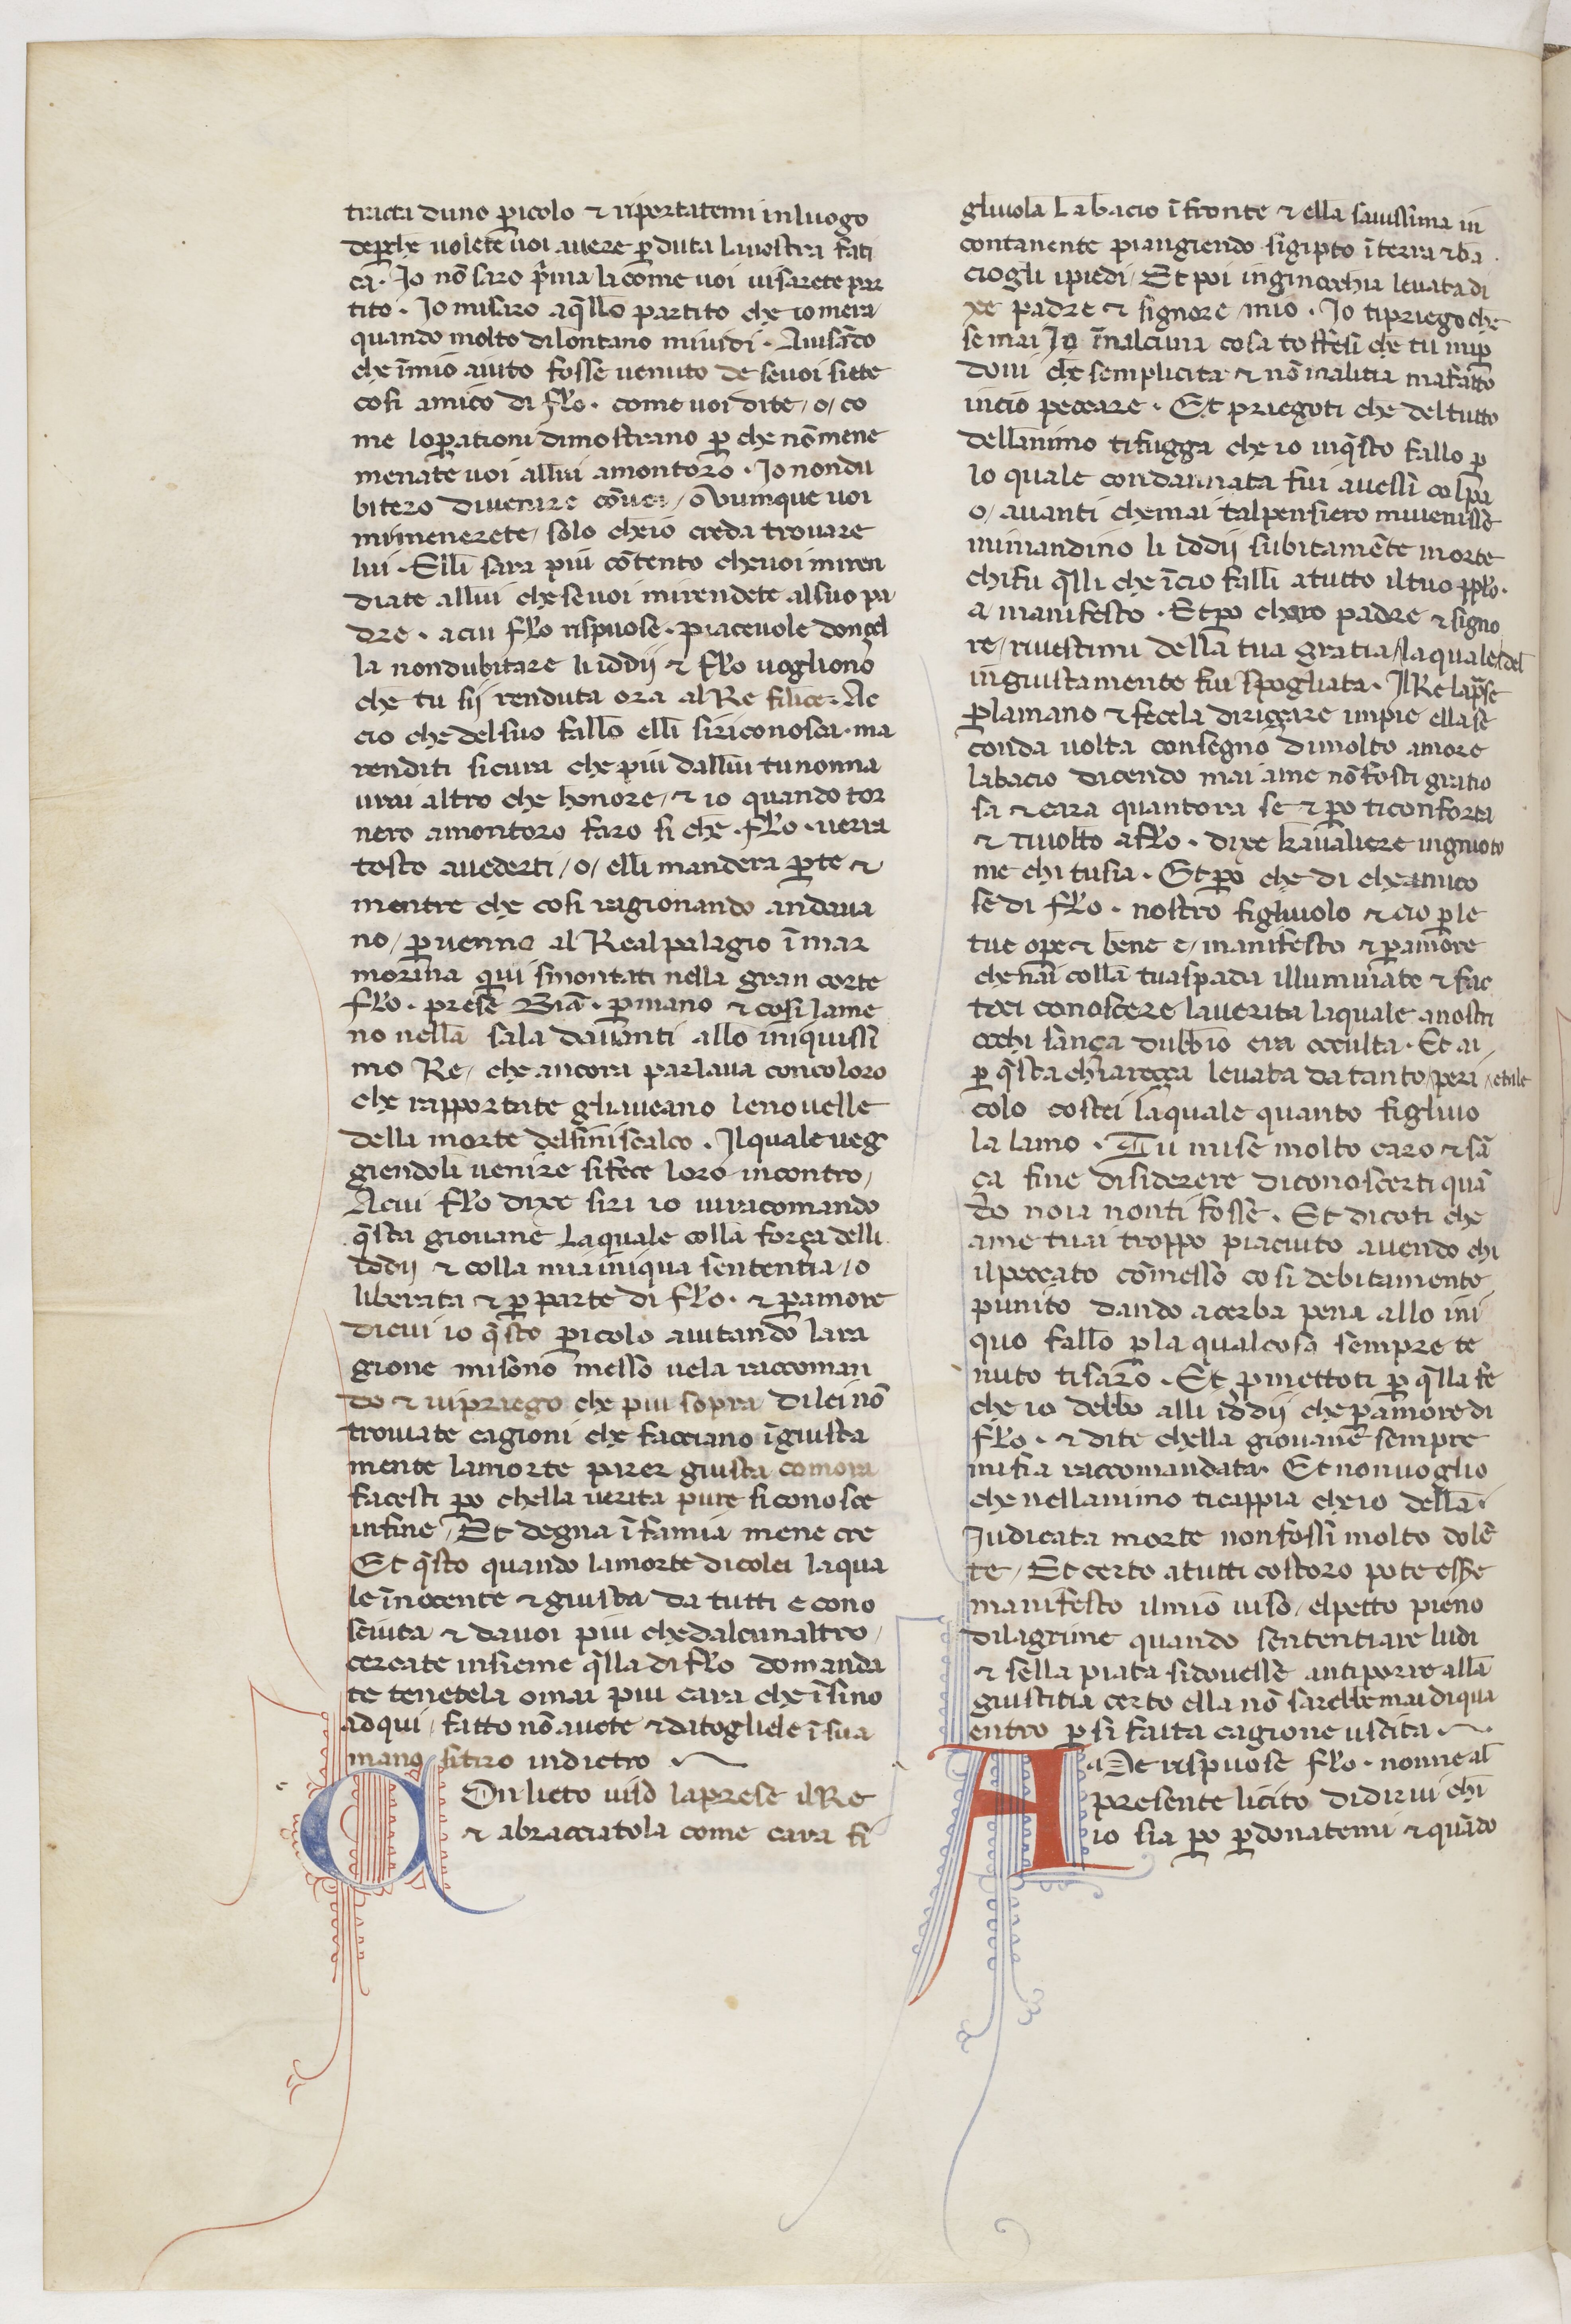 tracta duno ꝑicolo ⁊ riportatemi inluogo
deꝑche uolete uoi auere ꝑduta lauostra fati
ca · Io nō saro p̄ma la come uoi uisarete par
tito · Io misaro aq̄llo partito che iomera
quando molto dilontano miuidi · Auisādo
che īmio aiuto fosse uenuto de seuoi siete
cosi amico di flo · come uoi dite / o / co
me loꝑationi dimostrano ꝑ che nōmene
menate uoi allui amontoro · Io nondu
bitero diuenire cōuoi / ouumque uoi
mimenerete / solo cheio creda trouare
lui · Elli sara piu cōtento cheuoi miren
diate allui che seuoi mirendete alsuo pa
dre · acui flo rispuose · piaceuole donçel
la nondubitare li iddij ⁊ flo uogliono
che tu sij renduta ora al Re filice · Ac
cio che delsuo fallo elli siriconosca · ma
renditi sicura che piu dallui tunonna
urai altro che honore / ⁊ io quando tor
nero amontoro faro si che · flo · uerra
tosto auederti / o / elli mandera ꝑte ⁊
mentre che cosi ragionando andaua
no / ꝑuenno al Realpalagio ī mar
morina qui smontati nella gran corte
flo · prese Biā · ꝑmano ⁊ cosi lame
no nella sala dauanti allo iniquissi
mo Re / che ancora parlaua concoloro
che rapportate gliaueano lenouelle
della morte delsiniscalco · Ilquale ueg
giendoli uenire sifece loro incontro /
Acui flo dixe siri io uiracomando
q̄sta giouane laquale colla força delli
iddij ⁊ colla mia iniqua sententia / o
liberata ⁊ ꝑ parte di flo · ⁊ ꝑamore
dicui io q̄sto ꝑicolo aiutando lara
gione misono messo uela raccoman
do ⁊ uipriego che piu sopra dilei nō
trouiate cagioni che facciano īgiusta
mente lamorte parer giusta comora
facesti ꝑo chella uerita pure siconosce
infine / Et degna ī famia mene cre
Et q̄sto quando lamorte dicolei laqua
le īnocente ⁊ giusta da tutti e cono
sciuta ⁊ dauoi piu chedalcunaltro /
cercate insieme q̄lla di flo domanda
te tenetela omai piu cara che īsino
adqui / fatto nō auete ⁊ datogliele ī sua
mano sitiro indietro
Con lieto uiso laprese ilRe
⁊ abracciatola come cara fi
gliuola labacio ī fronte ⁊ ella sauissima in
contanente piangiendo sigipto ī terra ⁊ ba
ciogli ipiedi / Et poi inginocchia leuata di
xe padre ⁊ signore mio · Io tipriego che
se mai Io īnalcuna cosa toffesi che tu miꝑ
doni che semplicita ⁊ nō malitia mafatto
incio peccare · Et priegoti che deltutto
dellanimo tifugga che io inq̄sto fallo ꝑ
lo quale condannata fui auessi colpa
o / auanti chemai talpensiero miuenisse
mimandino li iddij subitamēte morte
chifu q̄lli che īcio falli atutto iltuo pplo ·
a / manifesto · Etꝑo charo padre ⁊ signo
re / riuestimi della tua gratia / laquale / del
ingiustamente fui spogliata · IlRe lap̄se
ꝑlamano ⁊ fecela diriççare impie ellase
conda uolta consegno dimolto amore
labacio dicendo mai ame nōfosti gratio
sa ⁊ cara quantora se ⁊ ꝑo ticonforta
⁊ riuolto aflo · dixe kaualiere ingnoto
me chi tusia · Et ꝑo che di cheamico
se di flo · nostro figliuolo ⁊ cio ꝑle
tue oꝑe ⁊ bene e / manifesto ⁊ ꝑamore
che nai colla tuaspada illuminate ⁊ fac
toci conoscere lauerita laquale anostri
occhi sança dubbio era occulta · Et ai
ꝑ q̄sta chiareçça leuata da tanto / peri / ⁊tale
colo costei laquale quanto figliuo
la lamo · Tu mise molto caro ⁊ sā
ça fine disiderere diconoscerti quā
do noia nonti fosse · Et dicoti che
ame tuai troppo piaciuto auendo chi
ilpeccato cōmesso cosi debitamente
punito dando acerba pena allo ini
quo fallo ꝑla qualcosa sempre te
nuto tisaro · Et ꝓmettoti ꝑ q̄lla fe
che io debbo alli iddij che ꝑamore di
flo · ⁊ dite chella giouane sempre
mifia raccomandata · Et nonuoglio
che nellanimo ticappia cheio della ·
Iudicata morte nonfossi molto dolē
te / Et certo atutti costoro pote esse
manifesto ilmio uiso / elpetto pieno
dilagrime quando sententiare ludi
⁊ sella piata sidouesse antiporre alla
giustitia certo ella nō sarebbe mai diqua
entro ꝑ si fatta cagione uscita
A De rispuose flo · nonne al
presente licito didirui chi
io sia ꝑo ꝑdonatemi ⁊ quādo